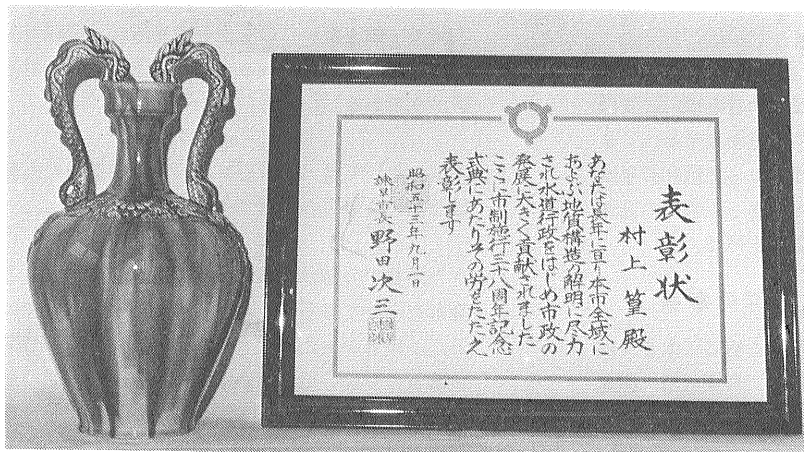 表彰状
村上篁殿
あなたは長年に亘り本市全域に
およぶ地質構造の解明に尽力
され水道行政をはじめ市政の
発展に大きく貢献されました
ここに市制施行三十八周年記念
式典にあたりその労をたたえ
表彰します
昭和五十三年九月一日
諫早市長 野田次三